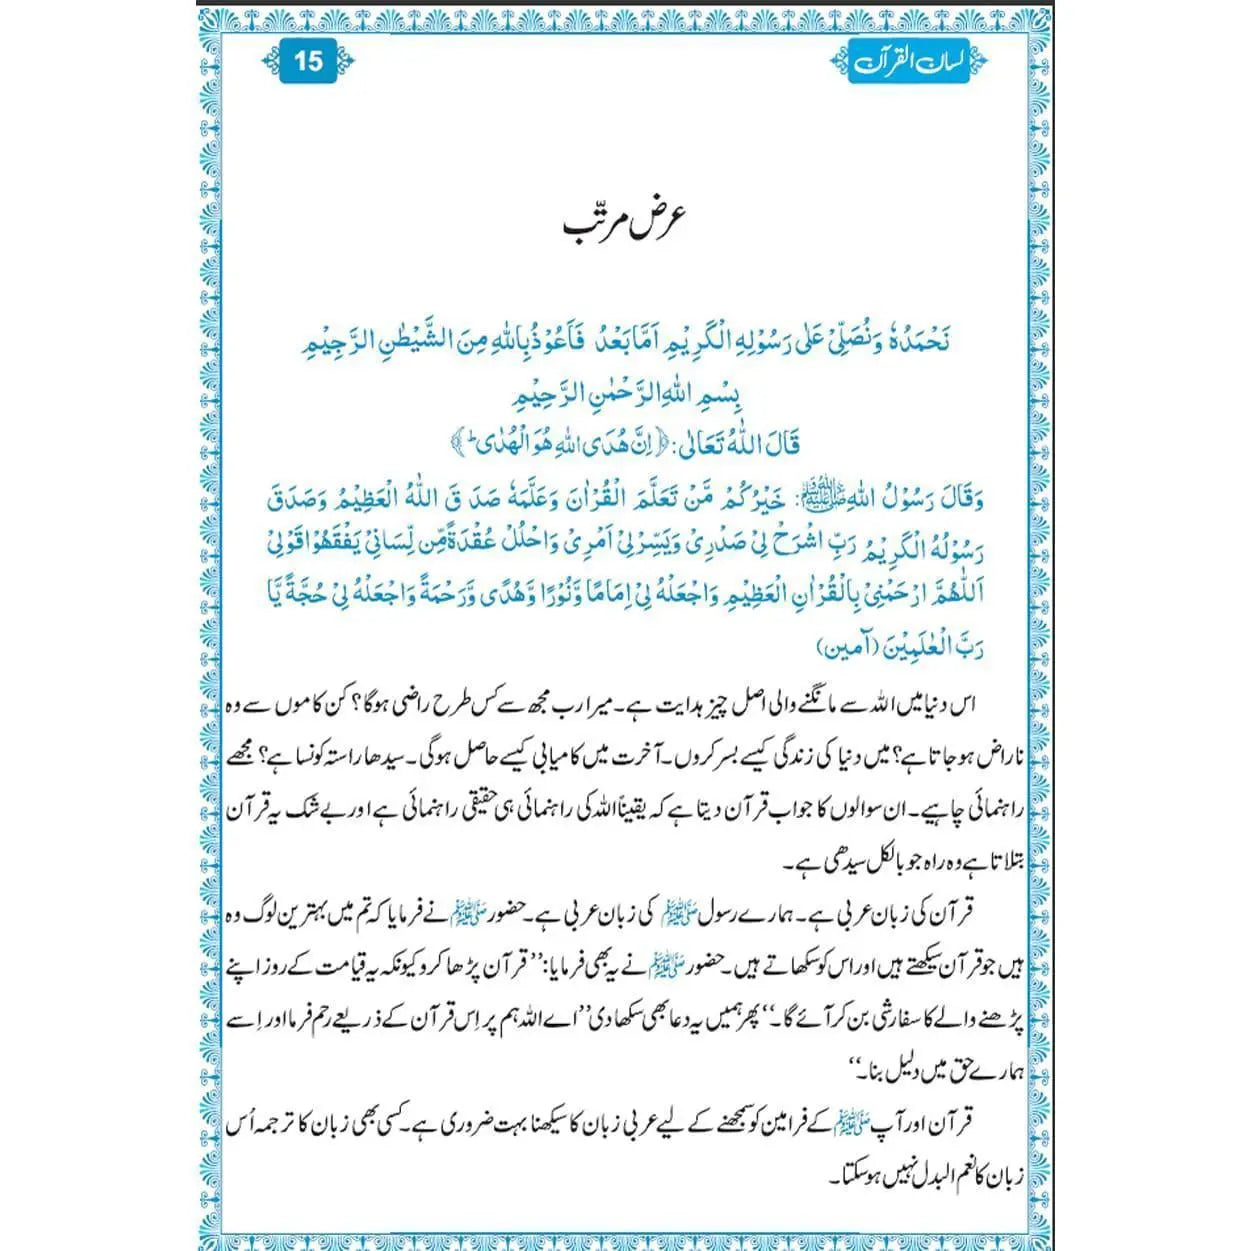 لسان القرآن
15
عرض مرتّب
نَحْمَدُہٗ وَنُصَلِّیْ عَلٰی رَسُوْلِہِ الْکَرِیْمِ اَمَّا بَعْدُ فَاَعُوْذُ بِاللّٰہِ مِنَ الشَّیْطٰنِ الرَّجِیْمِ
بِسْمِ اللّٰہِ الرَّحْمٰنِ الرَّحِیْمِ
قَالَ اللّٰہُ تَعَالٰی: ﴿اِنَّ ھُدَی اللّٰہِ ھُوَ الْھُدٰی ؕ﴾
وَقَالَ رَسُوْلُ اللّٰہِ ﷺ: خَیْرُکُمْ مَّنْ تَعَلَّمَ الْقُرْاٰنَ وَعَلَّمَہٗ صَدَ قَ اللّٰہُ الْعَظِیْمُ وَصَدَقَ
رَسُوْلُہُ الْکَرِیْمُ رَبِّ اشْرَحْ لِیْ صَدْرِیْ وَیَسِّرْ لِیْ اَمْرِیْ وَاحْلُلْ عُقْدَۃً مِّن لِّسَانِیْ یَفْقَھُوْا قَوْلِیْ
اَللّٰھُمَّ ارْحَمْنِیْ بِالْقُرْاٰنِ الْعَظِیْمِ وَاجْعَلْہُ لِیْ اِمَامًا وَّنُوْرًا وَّھُدًی وَّرَحْمَۃً وَاجْعَلْہُ لِیْ حُجَّۃً یَّا
رَبَّ الْعٰلَمِیْنَ (آمین)
اس دنیا میں اللہ سے مانگنے والی اصل چیز ہدایت ہے۔ میرا رب مجھ سے کس طرح راضی ہوگا؟ کن کاموں سے وہ
ناراض ہو جاتا ہے؟ میں دنیا کی زندگی کیسے بسر کروں۔ آخرت میں کامیابی کیسے حاصل ہوگی۔ سیدھا راستہ کونسا ہے؟ مجھے
راہنمائی چاہیے۔ ان سوالوں کا جواب قرآن دیتا ہے کہ یقیناً اللہ کی راہنمائی ہی حقیقی راہنمائی ہے اور بے شک یہ قرآن
بتلاتا ہے وہ راہ جو بالکل سیدھی ہے۔
قرآن کی زبان عربی ہے۔ ہمارے رسول ﷺ کی زبان عربی ہے۔ حضور ﷺ نے فرمایا کہ تم میں بہترین لوگ وہ
ہیں جو قرآن سیکھتے ہیں اور اس کو سکھاتے ہیں۔ حضور ﷺ نے یہ بھی فرمایا: ’’قرآن پڑھا کرو کیونکہ یہ قیامت کے روز اپنے
پڑھنے والے کا سفارشی بن کر آئے گا۔‘‘ پھر ہمیں یہ دعا بھی سکھا دی ’’اے اللہ ہم پر اِس قرآن کے ذریعے رحم فرما اور اِسے
ہمارے حق میں دلیل بنا۔‘‘
قرآن اور آپ ﷺ کے فرامین کو سمجھنے کے لیے عربی زبان کا سیکھنا بہت ضروری ہے۔ کسی بھی زبان کا ترجمہ اُس
زبان کا نعم البدل نہیں ہوسکتا۔